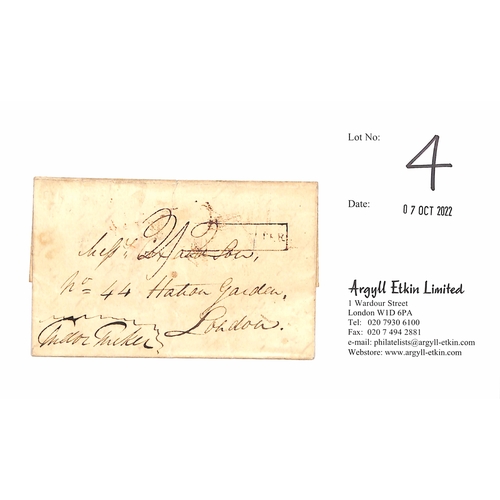 Lot No:
4
Date:
07 OCT 2022
Argyll Etkin Limited
1 Wardour Street
London W1D 6PA
Tel: 020 7930 6100
Fax: 020 7 494 2881
e-mail: philatelists@argyll-etkin.com
Webstore: www.argyll-etkin.com
Messrs
No 44 Hatton Garden,
London.